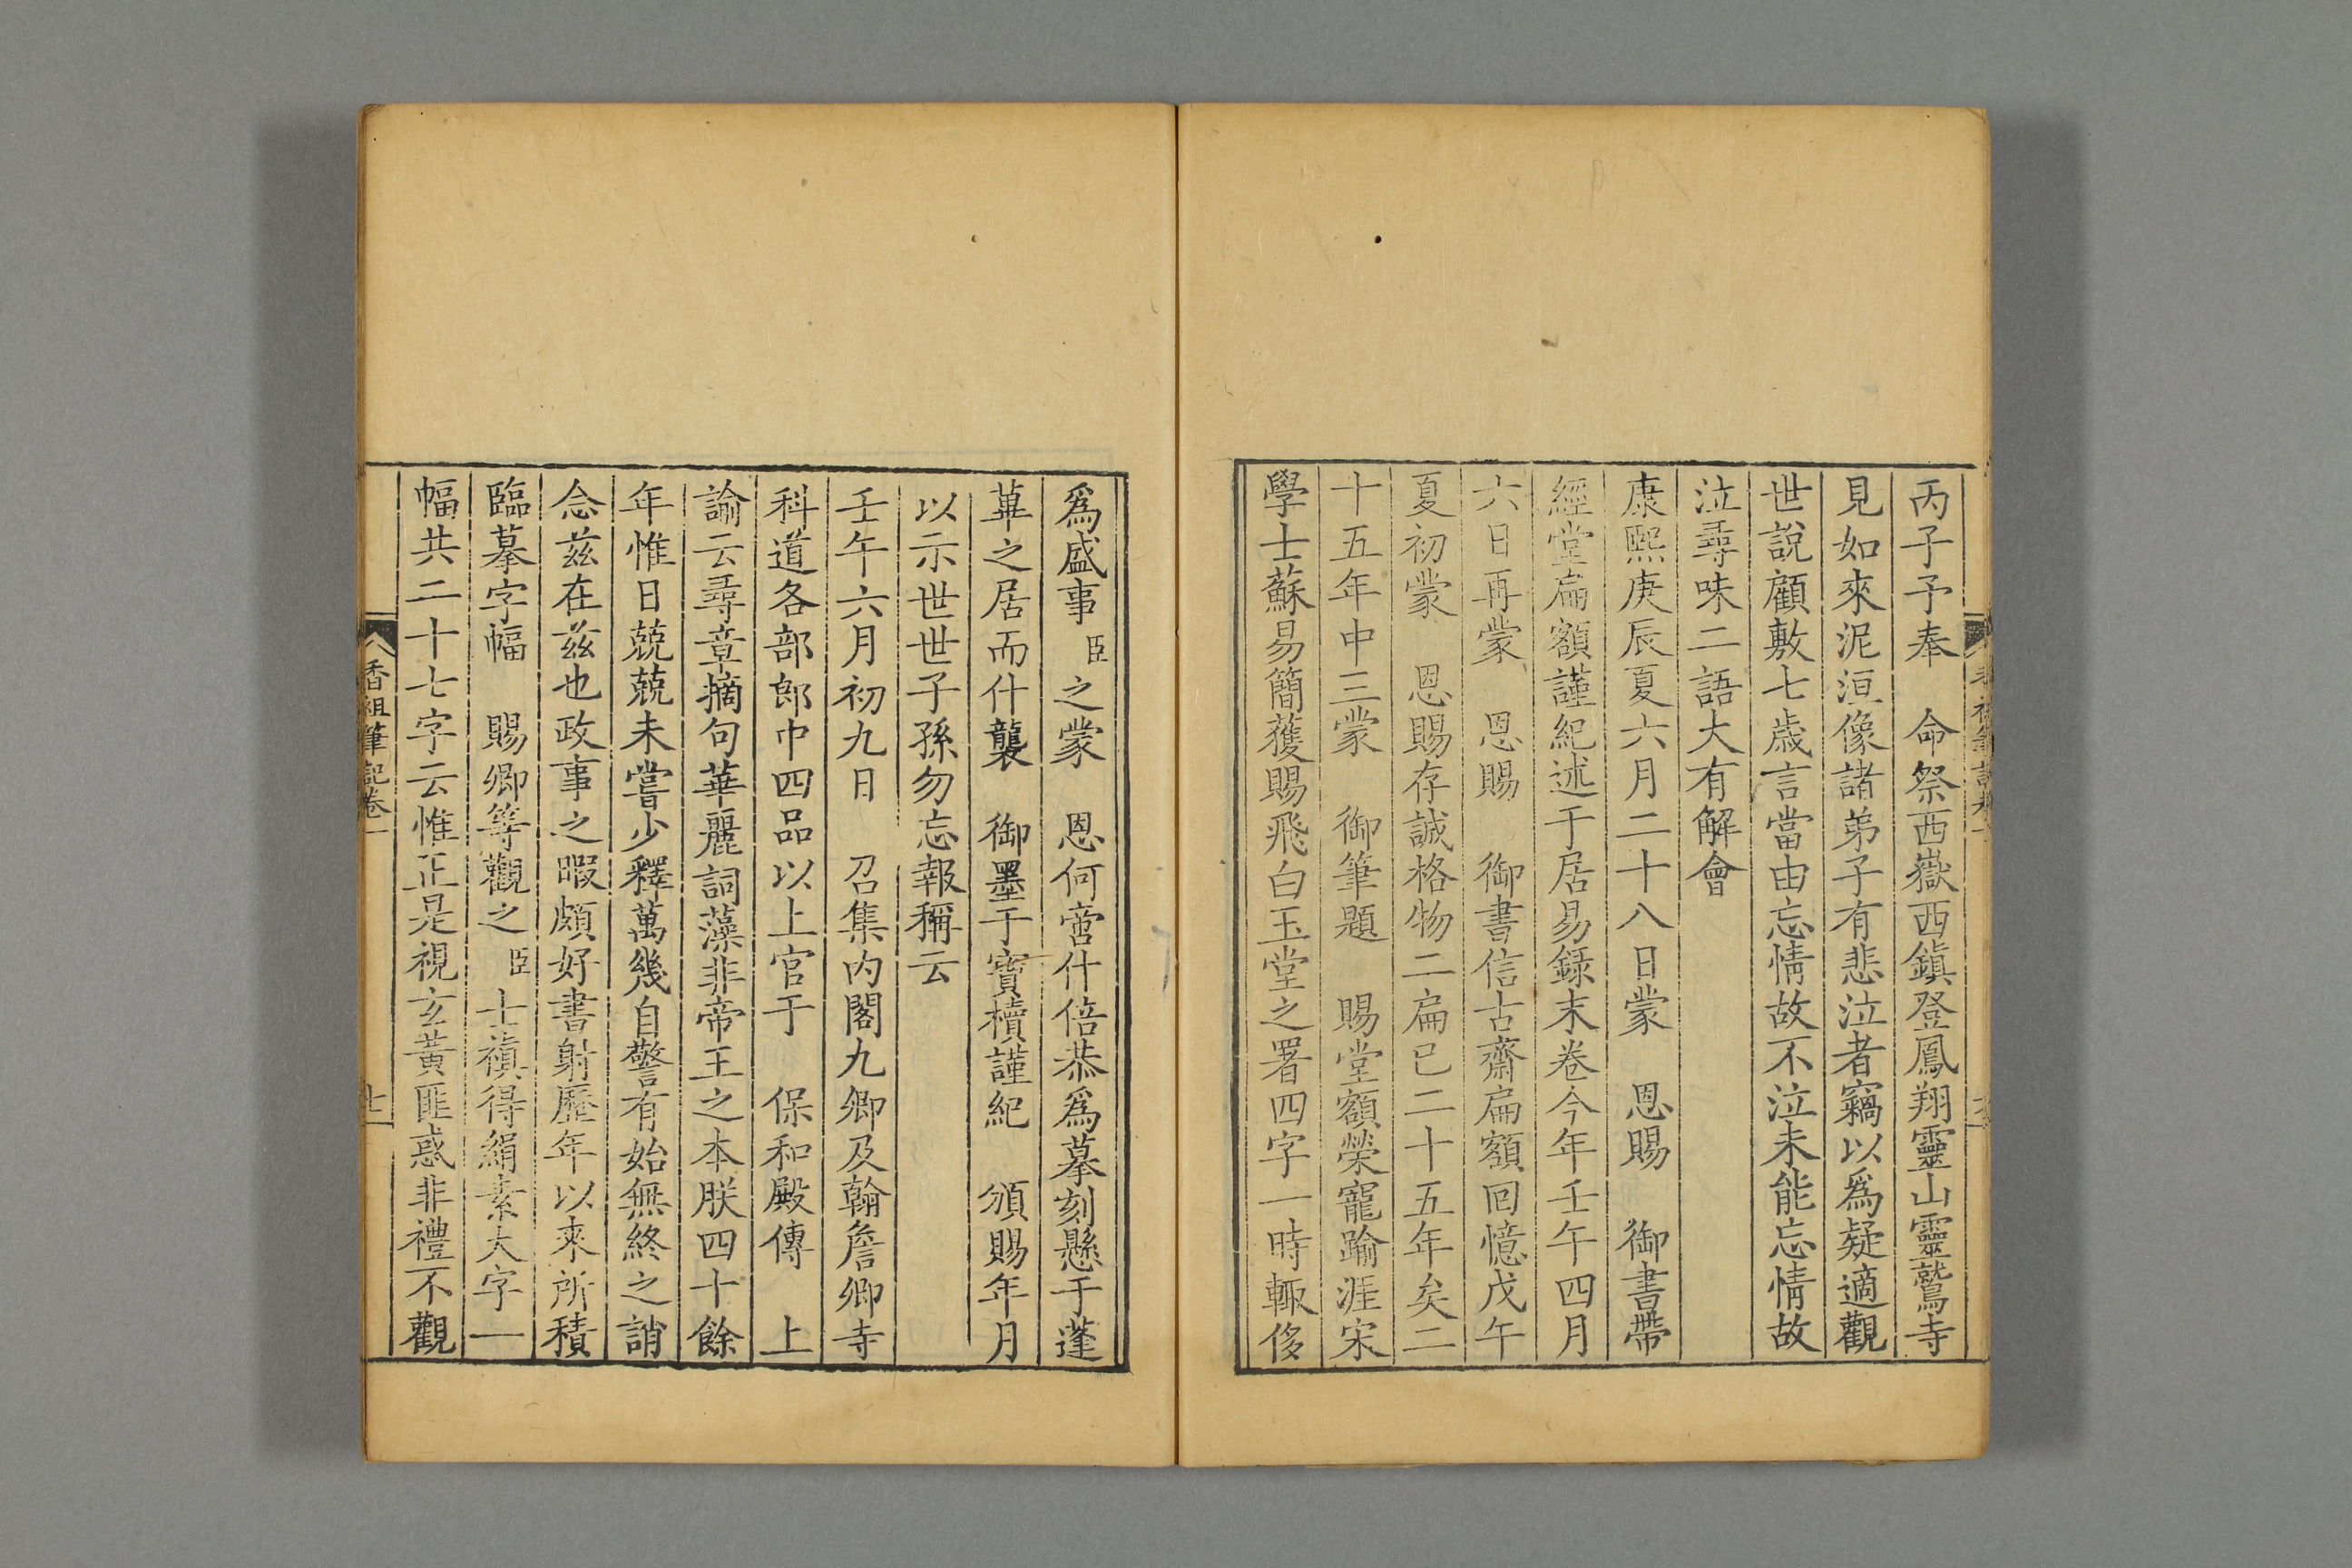 丙子予奉　命祭西嶽西鎮登鳳翔靈山靈鷲寺
見如來泥洹像諸弟子有悲泣者竊以爲疑適觀
世說顧敷七歳言當由忘情故不泣未能忘情故
泣尋味二語大有解會
康熙庚辰夏六月二十八日蒙　恩賜　御書帶
經堂扁額謹紀述于居易録末卷今年壬午四月
六日再蒙　恩賜　御書信古齋扁額回憶戊午
夏初蒙　恩賜存誠格物二扁已二十五年矣二
十五年中三蒙　御筆題　賜堂額榮寵踰涯宋
學士蘇易簡獲賜飛白玉堂之署四字一時輙侈
爲盛事臣之蒙　恩何啻什倍恭爲摹刻懸于蓬
蓽之居而什襲　御墨于寶櫝謹紀　頒賜年月
以示世世子孫勿忘報稱云
壬午六月初九日　召集内閣九卿及翰詹卿寺
科道各部郎中四品以上官于　保和殿傳　上
諭云尋章摘句華麗詞藻非帝王之本朕四十餘
年惟日兢兢未嘗少釋萬幾自警有始無終之誚
念兹在兹也政事之暇頗好書射歷年以來所積
臨摹字幅　賜卿等觀之臣士禛得絹素大字一
幅共二十七字云惟正是視玄黃匪惑非禮不觀
香祖筆記卷一